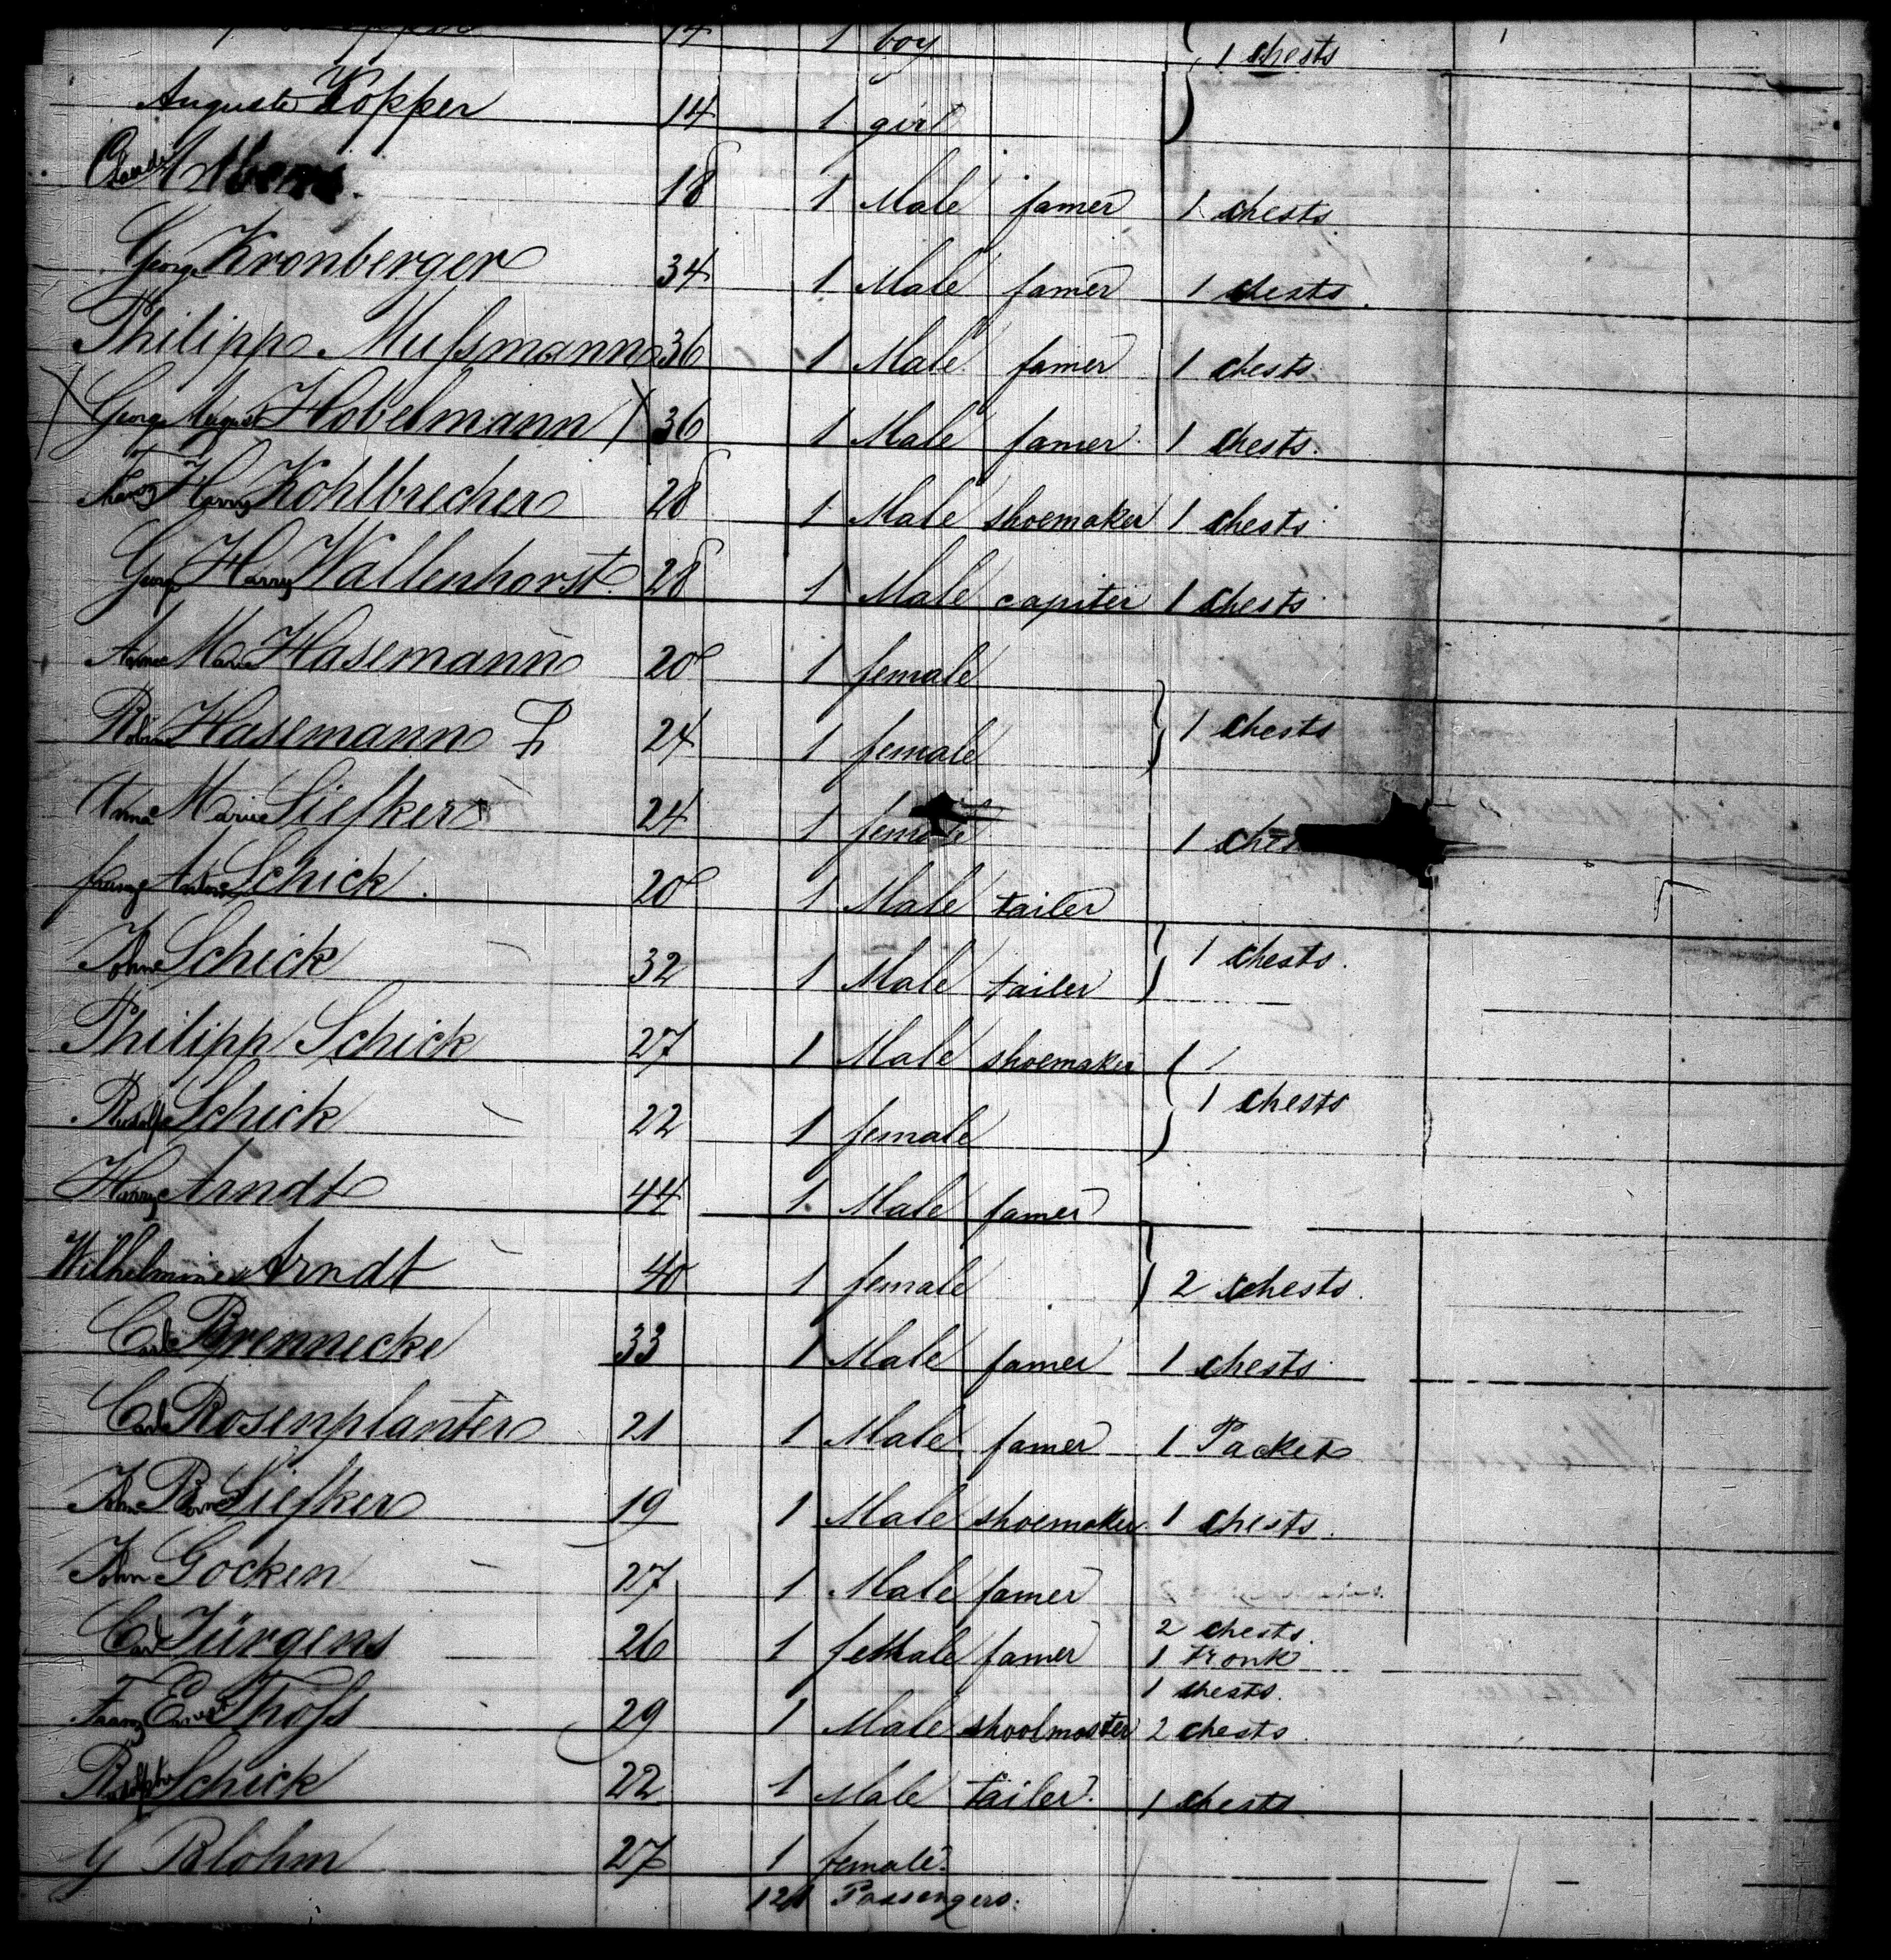 14 1 boy 1 chests
Auguste Kopper 14 1 girl
18 1 Male famer 1 chests
George Kronberger 34 1 Male famer 1 chests
Philipp Mußmann 36 1 Male famer 1 chests
George August Hobelmann 36 1 Male famer 1 chests
Franz Harry Kohlbrecher 28 1 Male shoemaker 1 chests
George Harry Wallenhorst 28 1 Male capiter 1 chests
Anne Marie Hasemann 20 1 female
Hasemann 24 1 female 1 chests
Anna Marie Siefker 24 1 female 1
Franz Antone Schick 20 1 Male tailer
John Schick 32 1 Male tailer 1 chests
Philipp Schick 27 1 Male shoemaker
Schick 22 1 female 1 chests
Harry Arndt 44 1 Male famer
Wilhelmine Arndt 40 1 female 2 chests
Carl Brennecke 33 1 Male famer 1 chests
Carl Rosenplanter 21 1 Male famer 1 Packet
Siefker 19 1 Male shoemaker 1 chests
John Gocken 27 1 Male famer
2 chests
Carl Jürgens 26 1 female famer 1 tronk
1 chests
Franz Thoß 29 1 Male shoolmaster 2 chests
Schick 22 1 Male tailer 1 chests
G Blohm 27 1 female
121 Passengers.